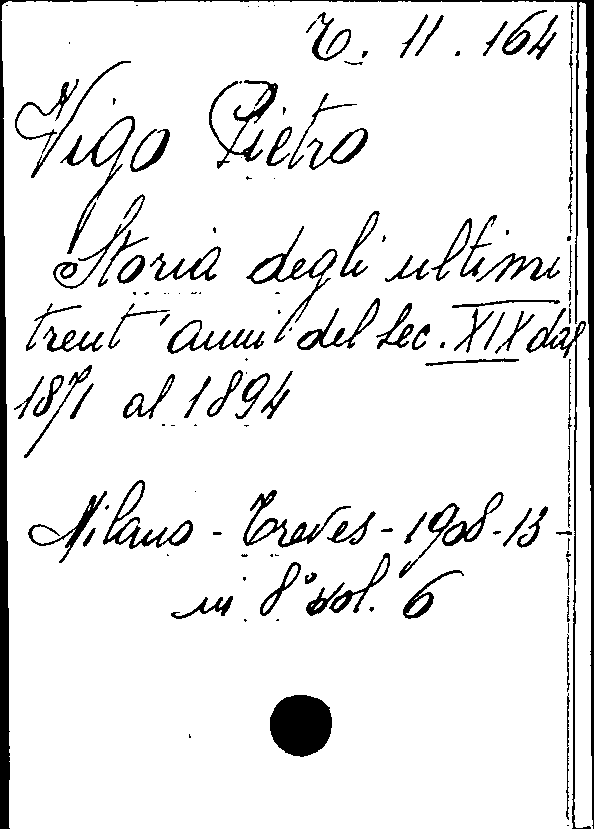 7. 11. 164
Vigo Pietro
Storia degli ultimi
trent'anni del Sec. XIX dal
1871 al 1894
Milano - Treves - 1908-13 -
in 8° vol. 6